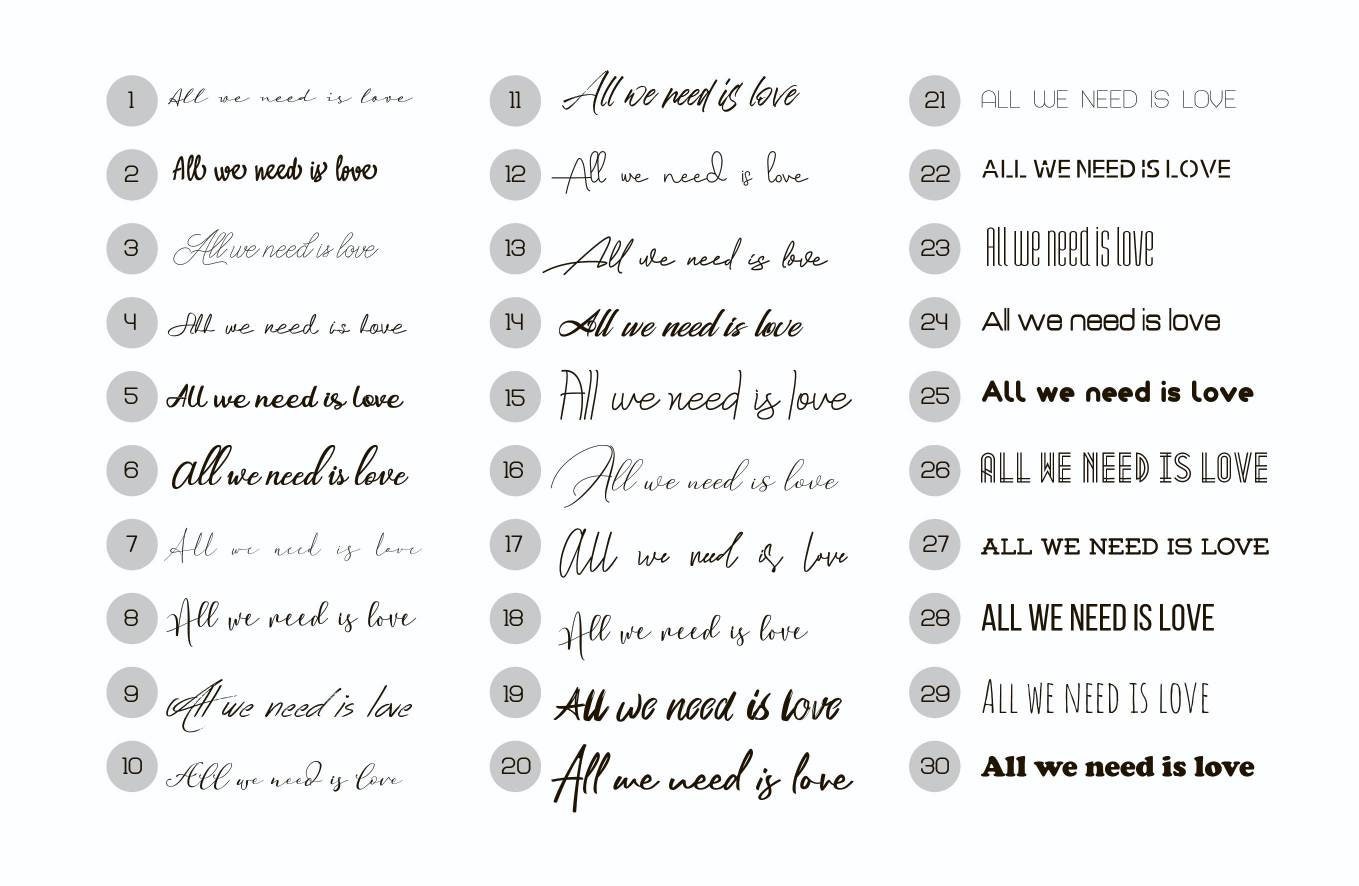 1 All we need is love
2 All we need is love
3 All we need is love
4 All we need is love
5 All we need is love
6 all we need is love
7 All we need is love
8 All we need is love
9 All we need is love
10 All we need is love
11 All we need is love
12 All we need is love
13 All we need is love
14 All we need is love
15 All we need is love
16 All we need is love
17 all we need is love
18 All we need is love
19 All we need is love
20 All we need is love
21 ALL WE NEED IS LOVE
22 ALL WE NEED IS LOVE
23 All we need is love
24 All we need is love
25 All we need is love
26 ALL WE NEED IS LOVE
27 ALL WE NEED IS LOVE
28 ALL WE NEED IS LOVE
29 ALL WE NEED IS LOVE
30 All we need is love